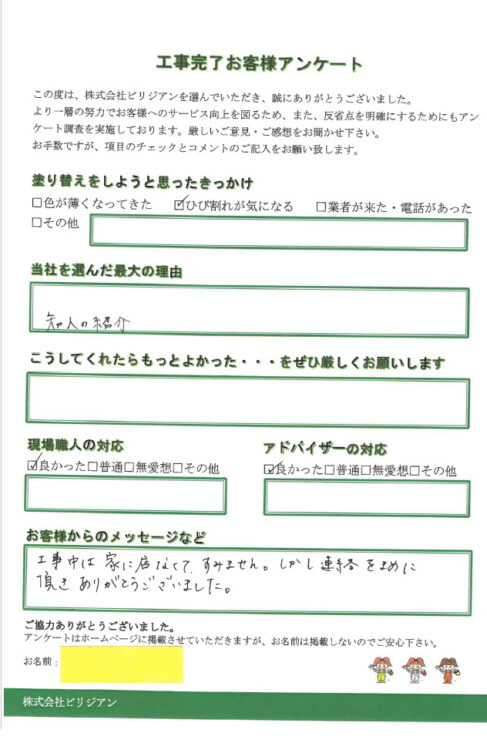 工事完了お客様アンケート
この度は、株式会社ビリジアンを選んでいただき、誠にありがとうございました。
より一層の努力でお客様へのサービス向上を図るため、また、反省点を明確にするためにもアン
ケート調査を実施しております。厳しいご意見・ご感想をお聞かせ下さい。
お手数ですが、項目のチェックとコメントのご記入をお願い致します。
塗り替えをしようと思ったきっかけ
□色が薄くなってきた ☑ひび割れが気になる □業者が来た・電話があった
□その他
当社を選んだ最大の理由
知人の紹介
こうしてくれたらもっとよかった・・・をぜひ厳しくお願いします
現場職人の対応 アドバイザーの対応
☑良かった□普通□無愛想□その他 ☑良かった□普通□無愛想□その他
お客様からのメッセージなど
工事中は家に居なくてすみません。しかし連絡をまめに
頂きありがとうございました。
ご協力ありがとうございました。
アンケートはホームページに掲載させていただきますが、お名前は掲載しないのでご安心下さい。
お名前：
株式会社ビリジアン